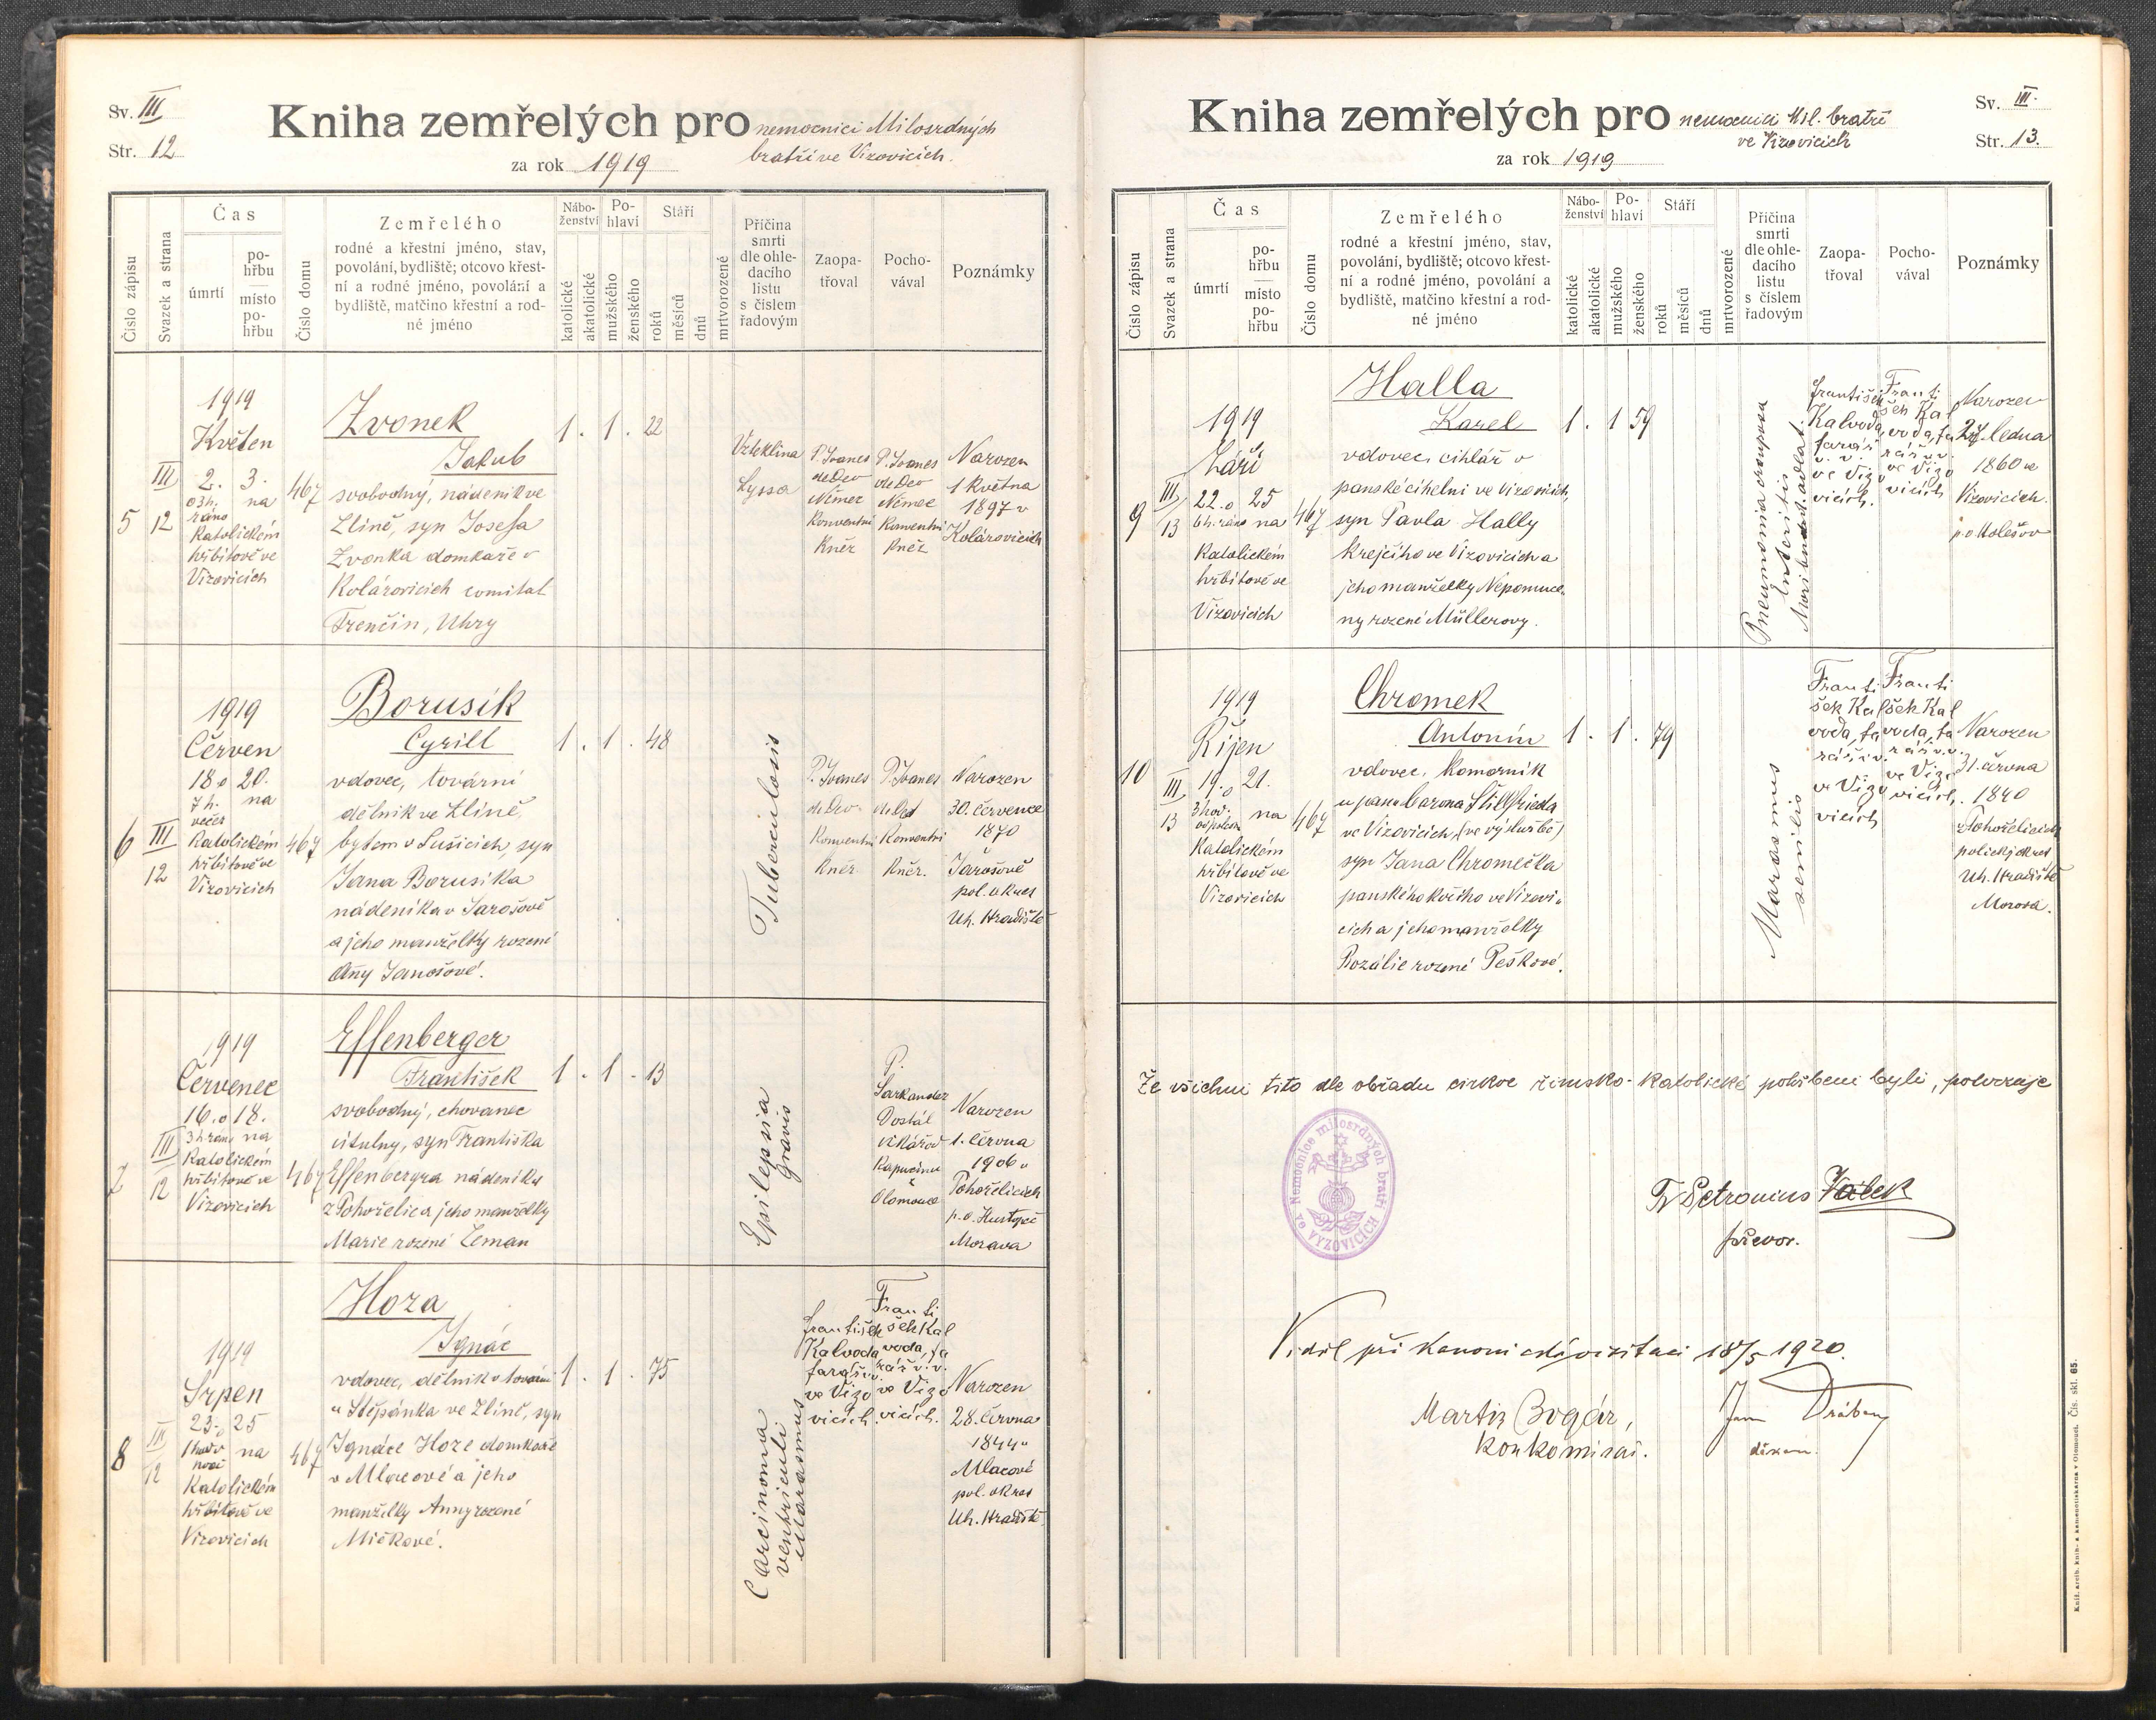 Sv. III
Str. 12
Kniha zemřelých pro nemocnici Milosrdných
bratří ve Vizovicích.
za rok 1919
Číslo zápisu
Svazek a strana
Čas
úmrtí
po-
hřbu
místo
po-
hřbu
Číslo domu
Zemřelého
rodné a křestní jméno, stav,
povolání, bydliště; otcovo křest-
ní a rodné jméno, povolání a
bydliště, matčino křestní a rod-
né jméno
Nábo-
ženství
katolické
akatolické
Po-
hlaví
mužského
ženského
Stáří
roků
měsíců
dnů
mrtvorozené
Příčina
smrti
dle ohle-
dacího
listu
s číslem
řadovým
Zaopa-
třoval
Pocho-
vával
Poznámky
5
III
12
1919
Květen
2. 3.
o 3h. na
ráno
Katolickém
hřbitově ve
Vizovicích
467
Zvonek
Jakub
svobodný, nádeník ve
Zlíně, syn Josefa
Zvonka domkaře v
Kolárovicích comitat
Trenčin, Uhry
1 . 1 . 22
Vzteklina
Lyssa
P. Ivanes
de Deo
Němec
Konventní
Kněz
P. Ivanes
de Deo
Němec
Konventní
Kněz
Narozen
1 Května
1897 v
Kolárovicích
6
III
12
1919
Červen
18 o 20.
7 h. na
večer
Katolickém
hřbitově ve
Vizovicích
467
Borusík
Cyrill
vdovec, tovární
dělník ve Zlíně,
bytem v Sušicích, syn
Jana Borusíka
nádeníka v Jarošově
a jeho manželky rozené
Any Janošové.
1 . 1 . 48
Tuberculosis
P. Ivanes
de Deo
Konventní
Kněz
P. Ivanes
de Deo
Konventní
Kněz.
Narozen
30. července
1870
v
Jarošově
pol. okres
Uh. Hradiště
7
III
12
1919
Červenec
16. o 18.
3 h ráno na
Katolickém
hřbitově ve
Vizovicích
467
Effenberger
František
svobodný, chovanec
citulny, syn Františka
Effenbergra nádeníka
z Pohořelic a jeho manželky
Marie rozené Zeman
1 . 1 - 13
Epilepsia
gravis
P.
Sarkander
Dostál
vikář od
Kapucínu
z
Olomouce
Narozen
1. června
1906 v
Pohořelicích
p. o. Hustopeč
Morava
8
III
12
1919
Srpen
23. o 25
1 hod v na
noci
Katolickém
hřbitově ve
Vizovicích
467
Hoza
Ignác
vdovec, dělník v továrně
u Štěpánka ve Zlíně, syn
Ignáce Hoze domkaře
v Mlacově a jeho
manželky Anny rozené
Mičkové.
1 . 1 . 75
Carcinoma
ventriculi
Marasmus
František
Kalvoda
farář v.v.
ve Vizo
vicích.
Franti
šek Kal
voda, fa
rář v. v.
ve Vizo
vicích.
Narozen
28. června
1844 v
Mlacově
pol. okres
Uh. Hradiště.
Kniha zemřelých pro nemocnici Mil. bratří
ve Vizovicích
za rok 1919
Sv. III.
Str. 13.
Číslo zápisu
Svazek a strana
Čas
úmrtí
po-
hřbu
místo
po-
hřbu
Číslo domu
Zemřelého
rodné a křestní jméno, stav,
povolání, bydliště; otcovo křest-
ní a rodné jméno, povolání a
bydliště, matčino křestní a rod-
né jméno
Nábo-
ženství
katolické
akatolické
Po-
hlaví
mužského
ženského
Stáří
roků
měsíců
dnů
mrtvorozené
Příčina
smrti
dle ohle-
dacího
listu
s číslem
řadovým
Zaopa-
třoval
Pocho-
vával
Poznámky
9
III
13
1919
Září
22. o 25
6 h. ráno na
Katolickém
hřbitově ve
Vizovicích
467
Halla
Karel
vdovec, cihlář v
panské cihelni ve Vizovicích,
syn Pavla Hally
Krejčího ve Vizovicích a
jeho manželky Nepomuce-
ny rozené Müllerovy.
1 . 1 59
Pneumonia crouposa
Enteritis
František
Kalvoda,
farář
v. v.
ve Vizo
vicích.
Franti
šek Kal
voda, fa
rář v.v.
ve Vizo
vicích
Narozen
27. ledna
1860 ve
Vizovicích.
p. o Holešov
10
III
13
1919
Říjen
19. o 21.
3 hod na
odpoledn
Katolickém
hřbitově ve
Vizovicích
467
Chromek
Antonín
vdovec, Komorník
u pana barona Stillfrieda
ve Vizovicích, (ve výslužbě)
syn Jana Chromečka
panského kočího ve Vizovi-
cích a jeho manželky
Rozálie rozené Peškové.
1 . 1 . 79
Marasmus
senilis
Franti
šek Kal
voda, fa
rář v. v.
ve Vizo
vicích
Franti
šek Kal
voda, fa
rář v.v.
ve Vizo
vicích.
Narozen
31. června
1840
z Pohořelicích
polický okres
Uh. Hradiště
Morava.
Že všichni tito dle obřadu církve římsko-katolické pohřbeni byli, potvrzuje
Nemocnice milosrdných bratří
VYZOVICÍCH
Fr Petronius Válek
převor.
Viděl při kanonické visitaci 18/5 1920.
Martin Bogár,
konkomisař.
Jan Drábek
děkan.
Kniž. arcib. knih- a kamenotiskárna v Olomouci. Čís. skl. 65.